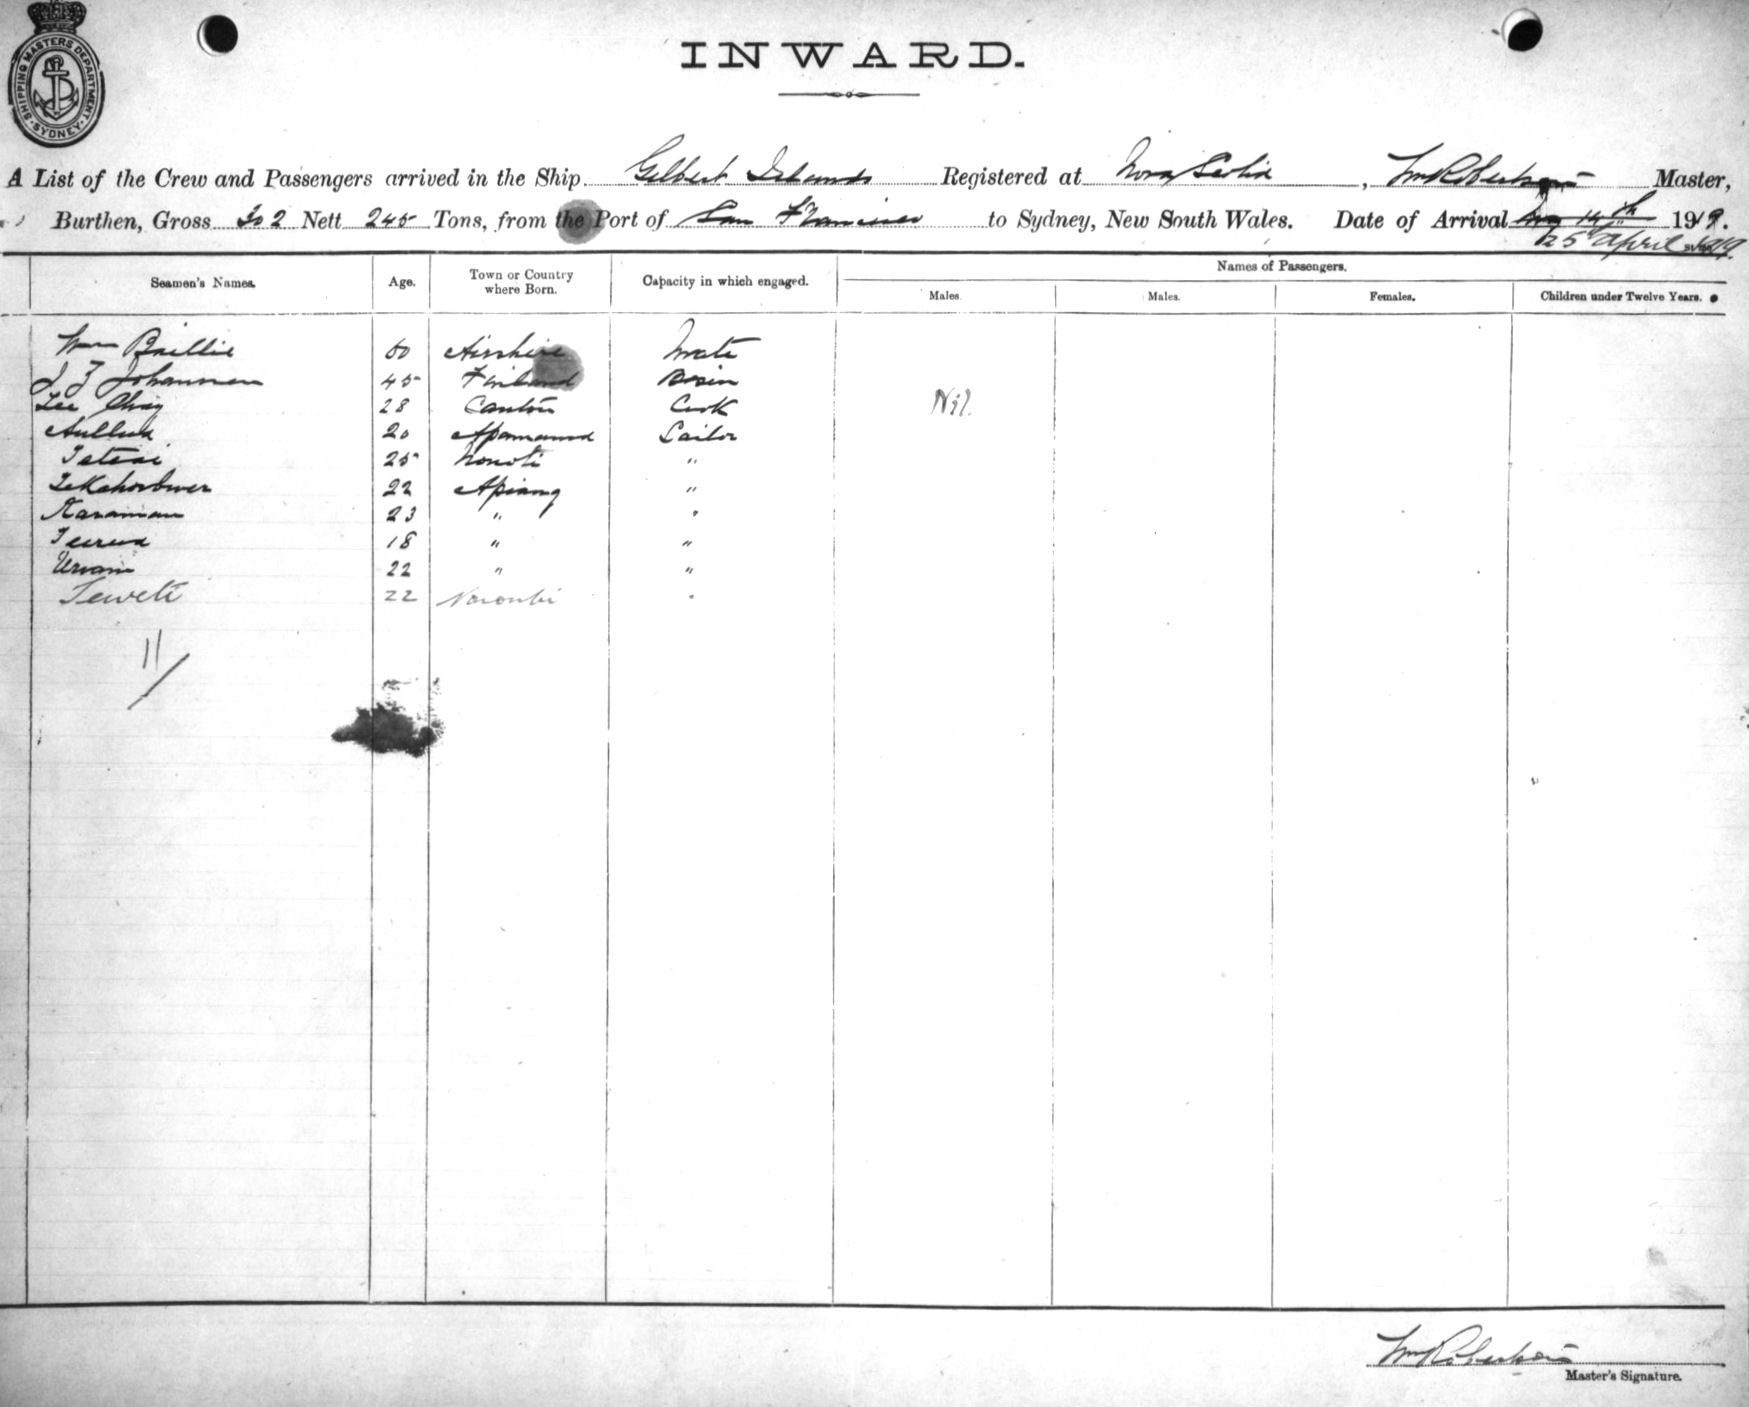 SHIPPING MASTERS DEPARTMENT. SYDNEY.
INWARD.
A List of the Crew and Passengers arrived in the Ship Gilbert Islands Registered at Nova Scotia, Wm Robertson Master,
Burthen, Gross 302 Nett 245 Tons, from the Port of San Francisco to Sydney, New South Wales. Date of Arrival 14th 1919.
25th April 1919.
Seamen's Names. Age. Town or Country where Born. Capacity in which engaged. Names of Passengers.
Males. Males. Females. Children under Twelve Years.
Wm Baillie 60 Airshire Mate
J Johannsen 45 Finland Bosin
Lee Ching 28 Canton Cook Nil.
20 Apamama Sailor
Teteai 25 Nonoti "
22 Apiang "
Karaman 23 " "
18 " "
22 " "
Teweti 22 "
11/
Wm Robertson
Master's Signature.